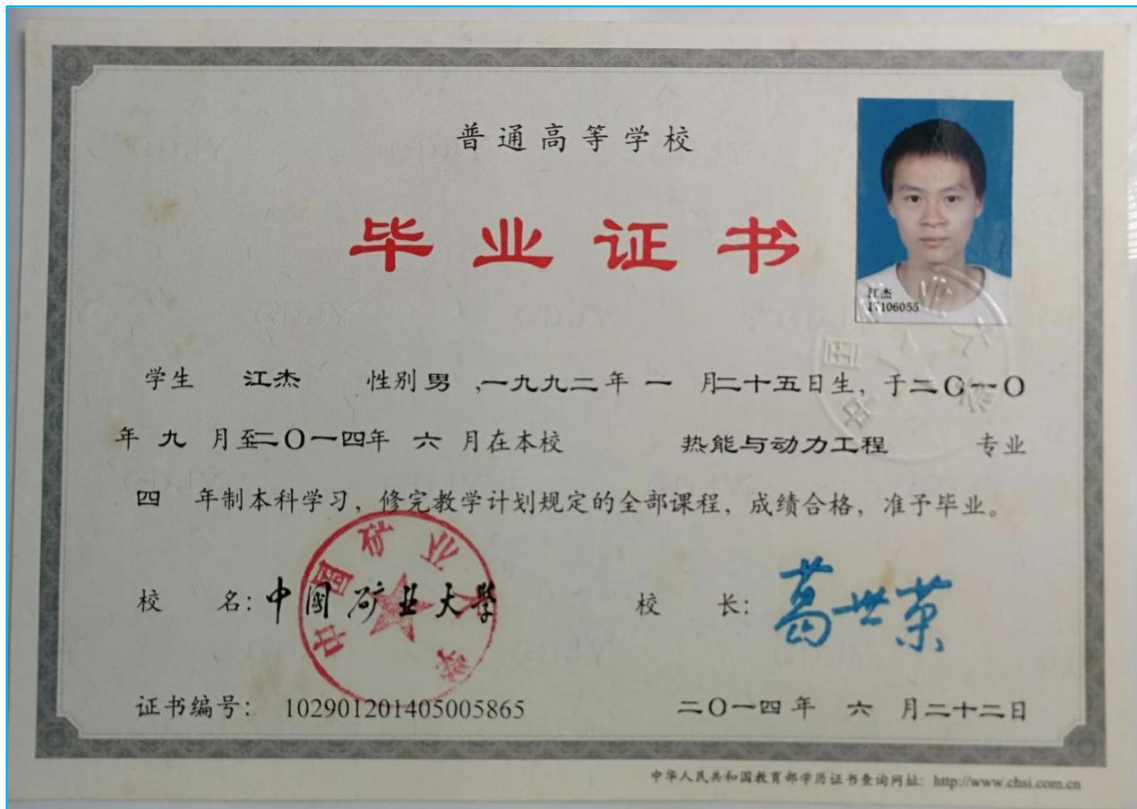 普通高等学校
毕业证书
江杰
17106055
学生 江杰 性别 男 ,一九九二年 一 月二十五日生, 于二〇一〇
年 九 月至二〇一四年 六 月在本校 热能与动力工程 专业
四 年制本科学习, 修完教学计划规定的全部课程, 成绩合格, 准予毕业。
校 名: 中国矿业大学
校 长: 葛世荣
中国矿业大学
证书编号: 102901201405005865
二〇一四年 六 月二十二日
中华人民共和国教育部学历证书查询网址: http://www.chsi.com.cn